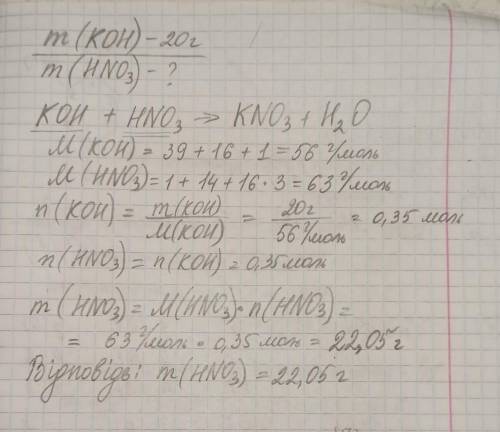 m(KOH) – 20г
m(HNO₃) – ?
KOH + HNO₃ → KNO₃ + H₂O
M(KOH) = 39 + 16 + 1 = 56 г/моль
M(HNO₃) = 1 + 14 + 16 · 3 = 63 г/моль
n(KOH) = m(KOH)/M(KOH) = 20г/56 г/моль = 0,35 моль
n(HNO₃) = n(KOH) = 0,35 моль
m(HNO₃) = M(HNO₃) · n(HNO₃) =
= 63 г/моль · 0,35 моль = 22,05 г
Відповідь: m(HNO₃) = 22,05 г